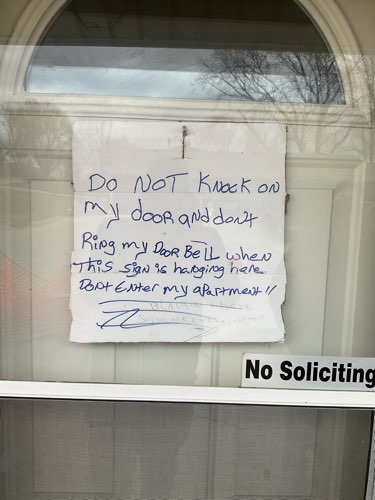 DO NOT KNOCK ON
my door and dont
Ring my Door BeLL when
This sign is hanging here.
Dont Enter my apartment!!
No Soliciting